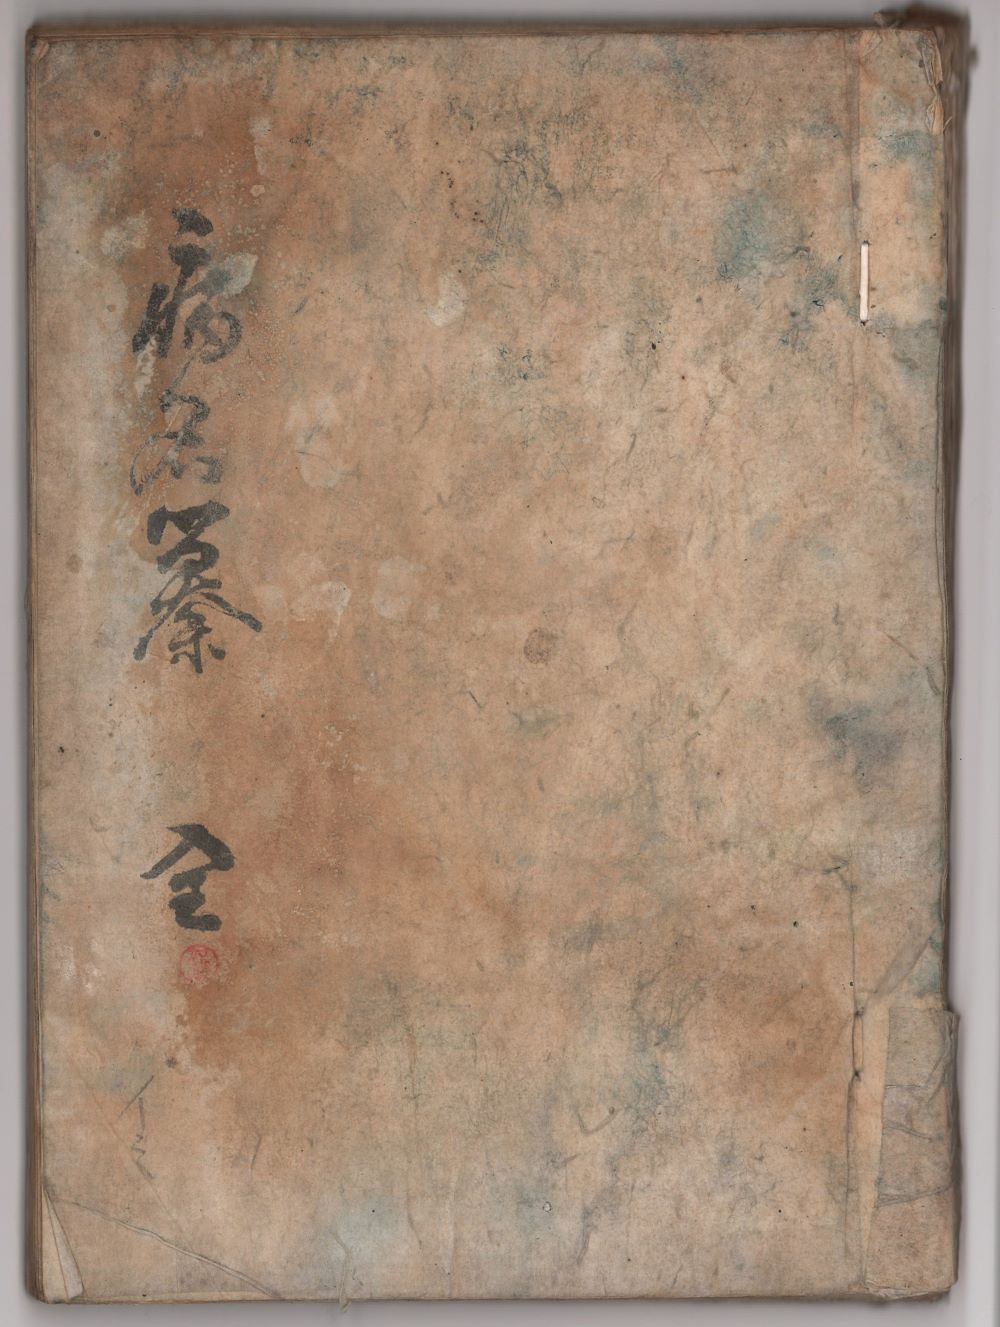 病名彙 全